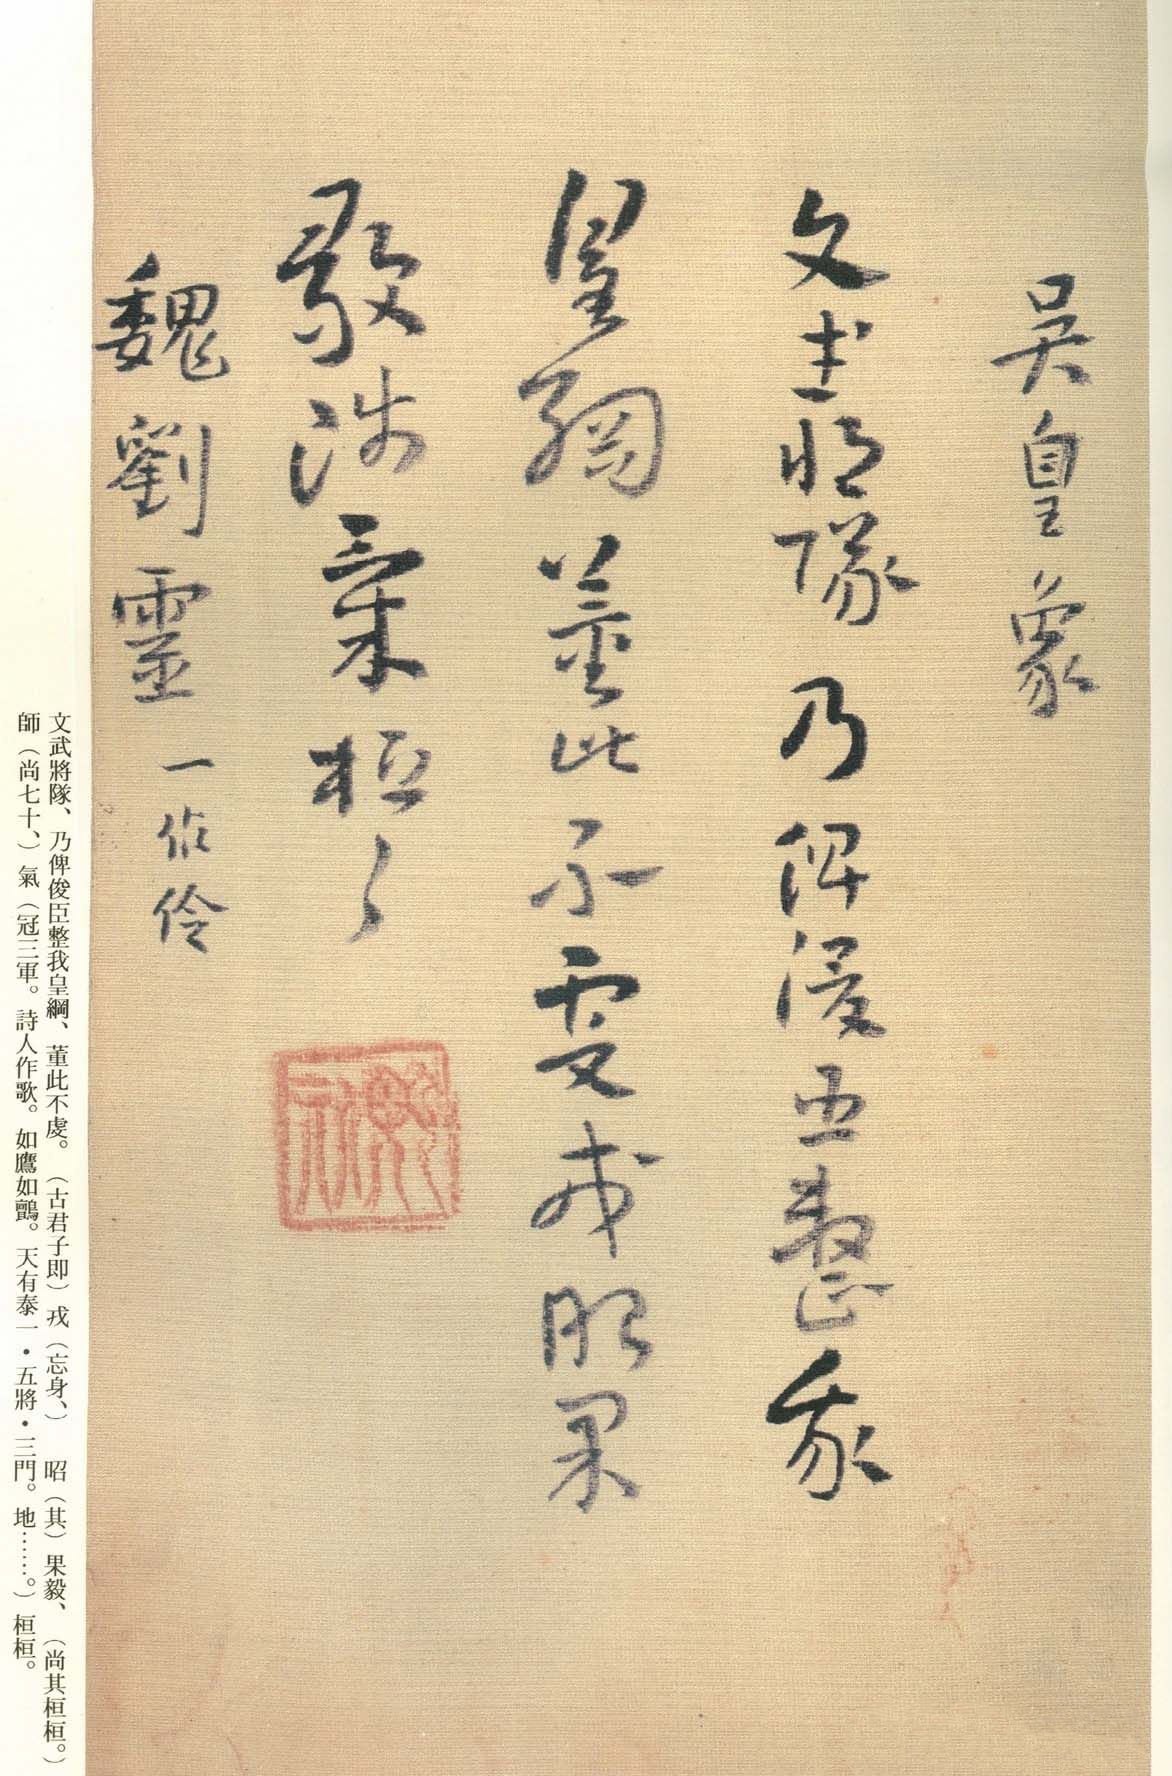 吳皇象
文武將隊乃俾俊臣整我
皇綱董此不虔戎昭果
毅師氣桓〻
魏劉靈一作伶
文武將隊、乃俾俊臣整我皇綱、董此不虔。（古君子即）戎（忘身、）　昭（其）果毅、（尚其桓桓。）
師（尚七十、）氣（冠三軍。詩人作歌。如鷹如鸇。天有泰一・五將・三門。地……。）桓桓。